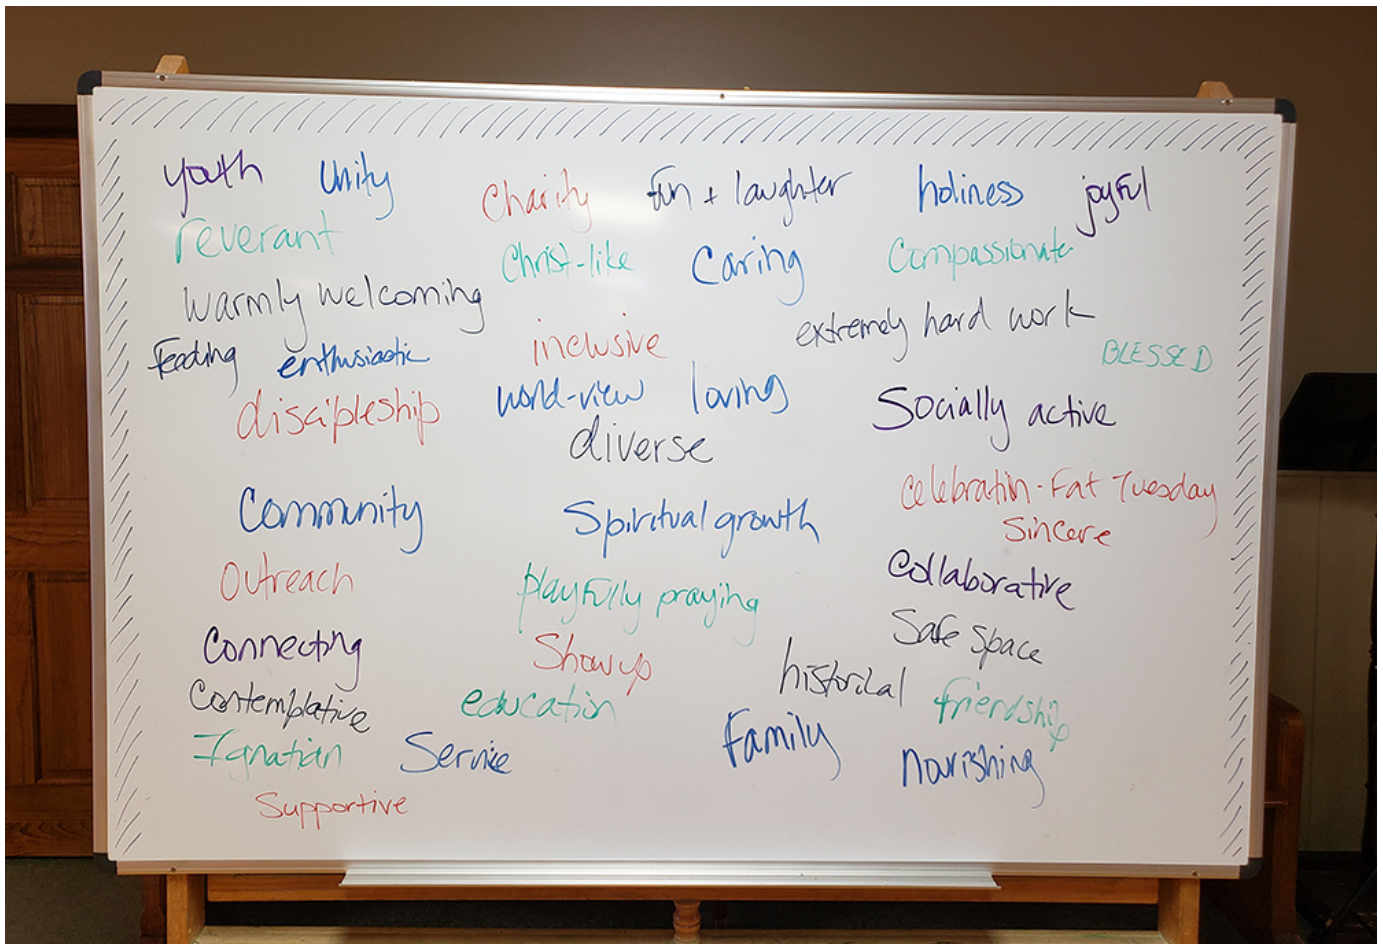 youth unity charity fun + laughter holiness joyful
reverant Christ-like Caring Compassionate
warmly welcoming extremely hard work
feeding enthusiastic inclusive BLESSED
discipleship world-view loving Socially active
diverse
Community Spiritual growth Celebration - Fat Tuesday
Sincere
Outreach playfully praying Collaborative
Connecting Show up Safe Space
Contemplative education historical friendship
Ignatian Service Family nourishing
Supportive